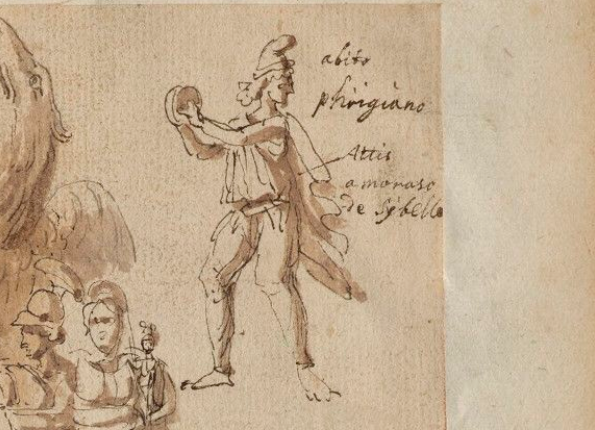 abito
phrigiano
Attis
amoraso
de Sybelle